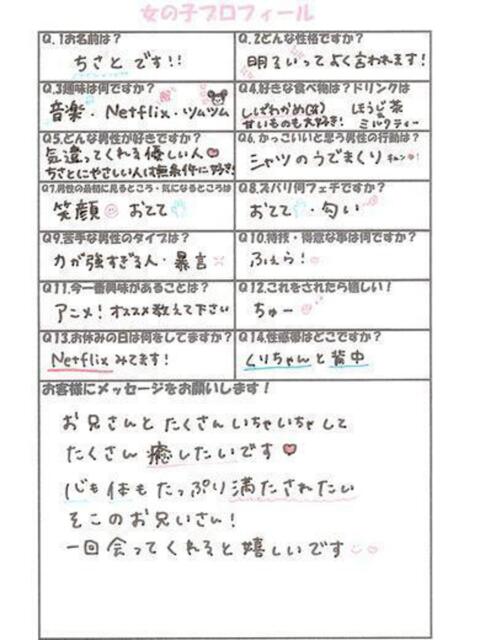 女の子プロフィール
Q.1お名前は？
ちさと です!!
Q.2どんな性格ですか？
明るいって よく言われます!
Q.3趣味は何ですか？
音楽・Netflix・ツムツム
Q.4.好きな食べ物は？ドリンクは
しげわかめ(笑) ほうじ茶
甘いものも大好き! ミルクティー
Q5.どんな男性が好きですか？
気遣ってくれる優しい人
ちさとにやさしい人は無条件に好き!
Q6.かっこいいと思う男性の行動は？
シャツのうでまくり キュン!
Q7.男性の最初に見るところ・気になるところは
笑顔 おてて
Q8.ズバリ何フェチですか？
おてて・匂い
Q9.苦手な男性のタイプは？
力が強すぎる人・暴言
Q10.特技・得意な事は何ですか？
ふぇら!
Q11.今一番興味があることは？
アニメ! オススメ教えて下さい
Q12.これをされたら嬉しい！
ちゅー
Q13.お休みの日は何をしてますか？
Netflixみてます!
Q14.性感帯はどこですか？
くりちゃんと背中
お客様にメッセージをお願いします！
お兄さんとたくさんいちゃいちゃして
たくさん癒したいです
心も体もたっぷり満たされたい
そこのお兄いさん!
一回会ってくれると嬉しいです